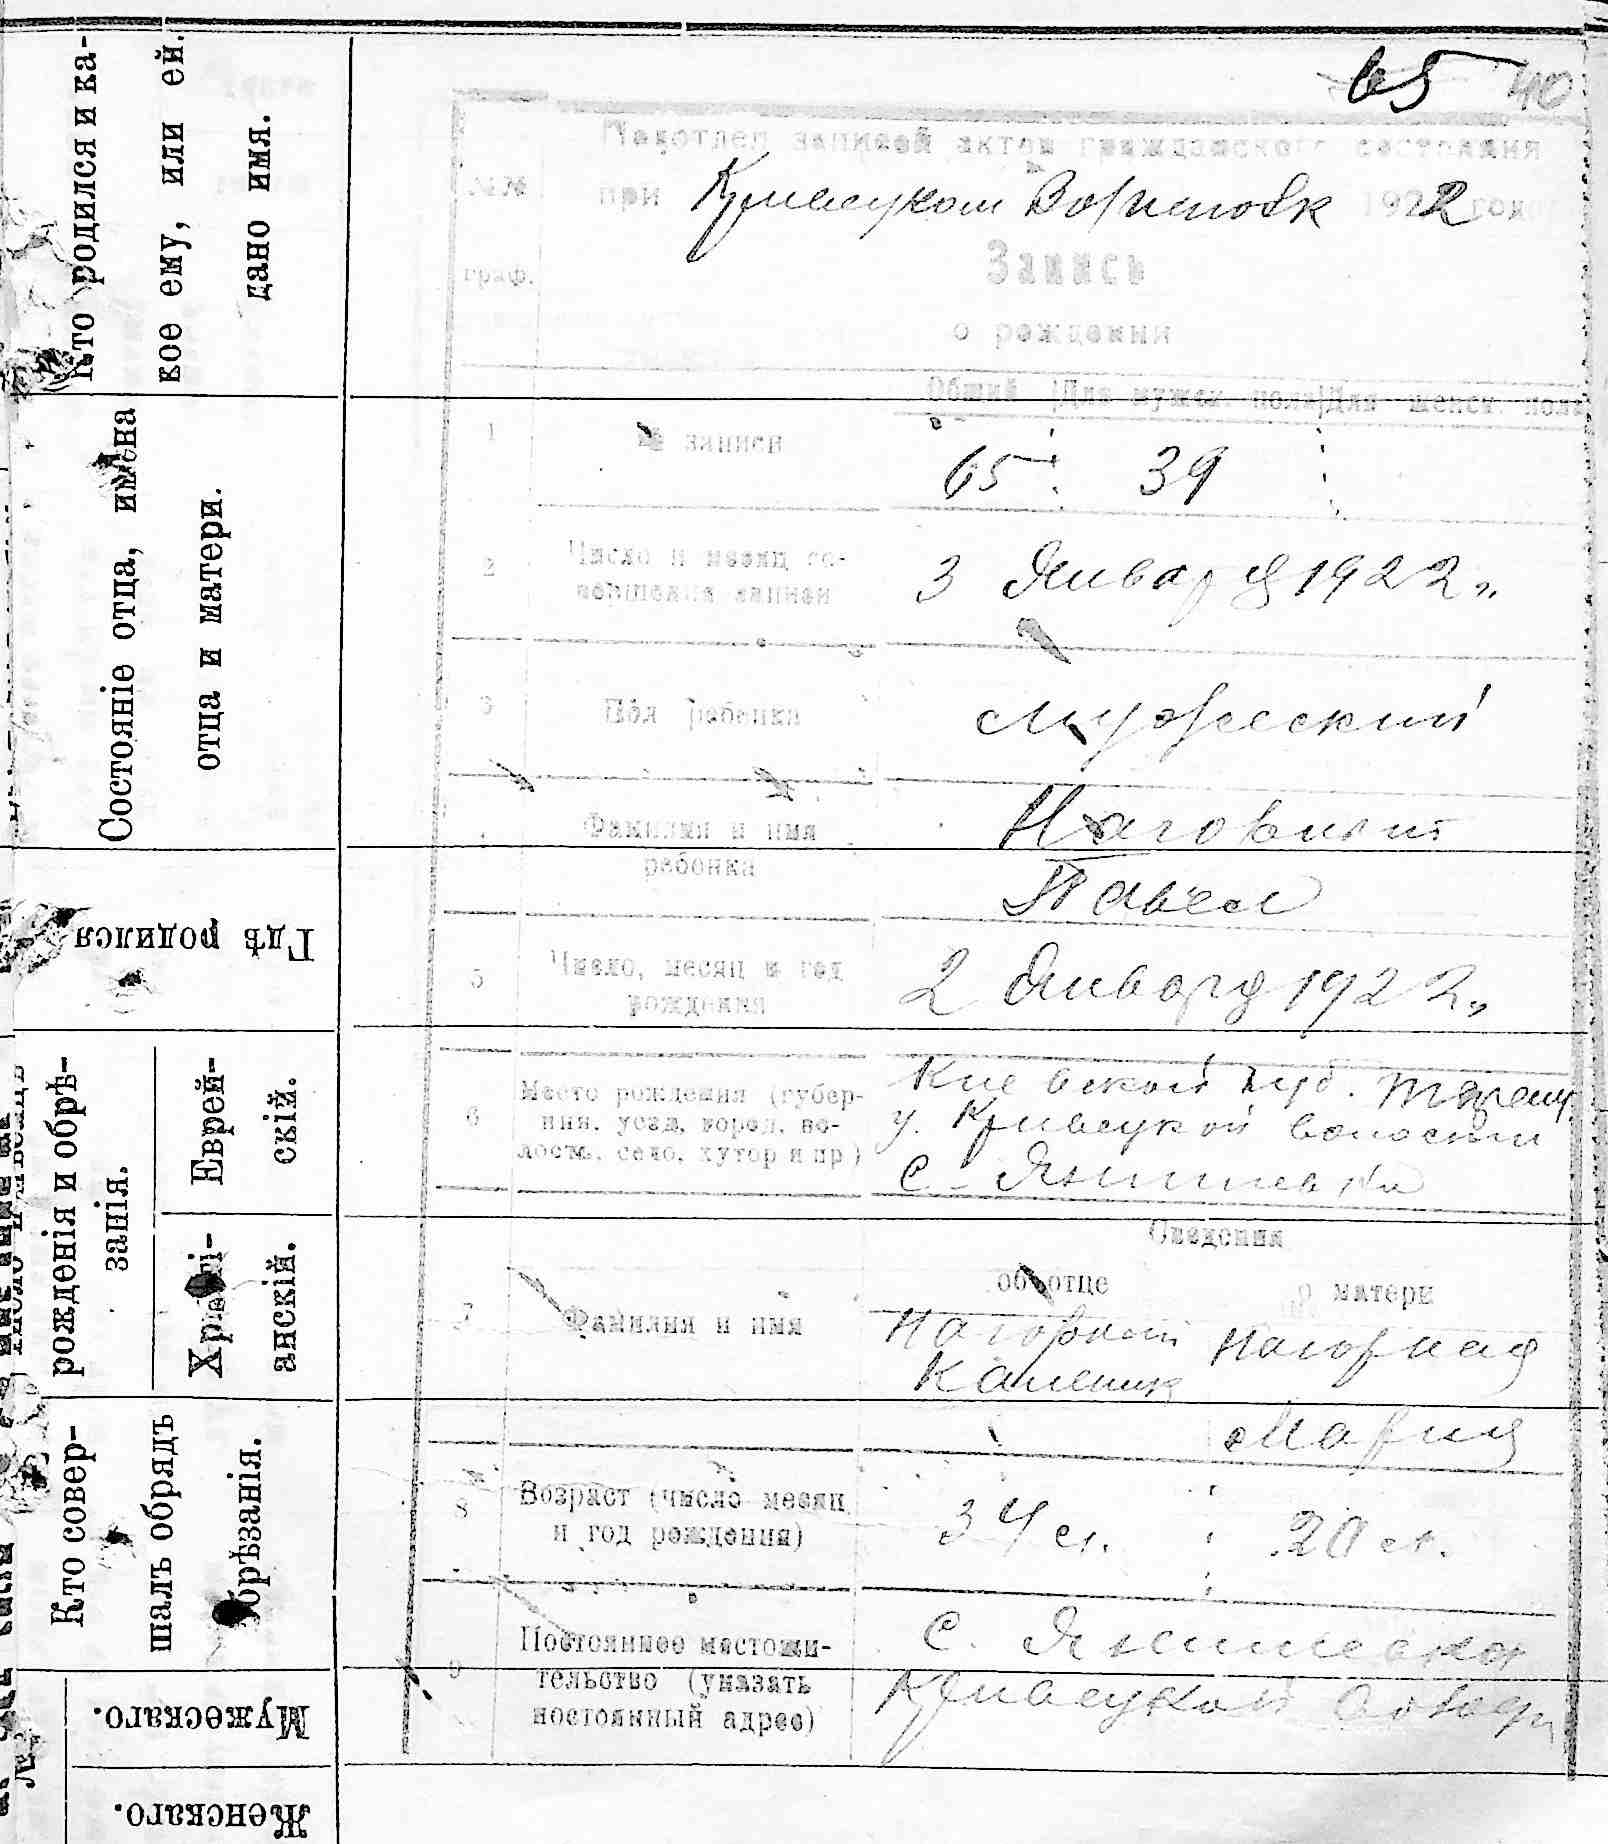 65 40
Подотдел записей актов гражданского состояния
№№ при Кривецком Волисповк 1922 года
граф.
Запись
о рождении
Общий Для мужск. пола Для женск. пола
1 № записи 65 39
2 Число и месяц совершения записи
3 Января 1922 г.
3 Пол ребенка мужеский
Фамилия и имя
ребенка
Нагорный
Павел
5 Число, месяц и год
рождения
2 Января 1922 г.
6 Место рождения (губер-
ния, уезд, город, во-
лость, село, хутор и пр)
Киевской губ. Таращ.
у. Кривецкой волости
с. Янишевка
Сведения
об отце о матери
7 Фамилия и имя
Нагорный Нагорная
Каленик
Мария
8 Возраст (число месяц
и год рождения)
34 л. 20 л.
9 Постоянное местожи-
тельство (указать
постоянный адрес)
с. Янишевка
Кривецкой
Кто родился и ка-
кое ему, или ей.
дано имя.
Состоянiе отца, имена
отца и матери.
Гдѣ родился
рожденiя и обрѣ-
занiя.
Еврей-
скiй.
Христi-
анскiй.
Кто совер-
шалъ обрядъ
обрѣзанiя.
Мужескаго.
Женскаго.